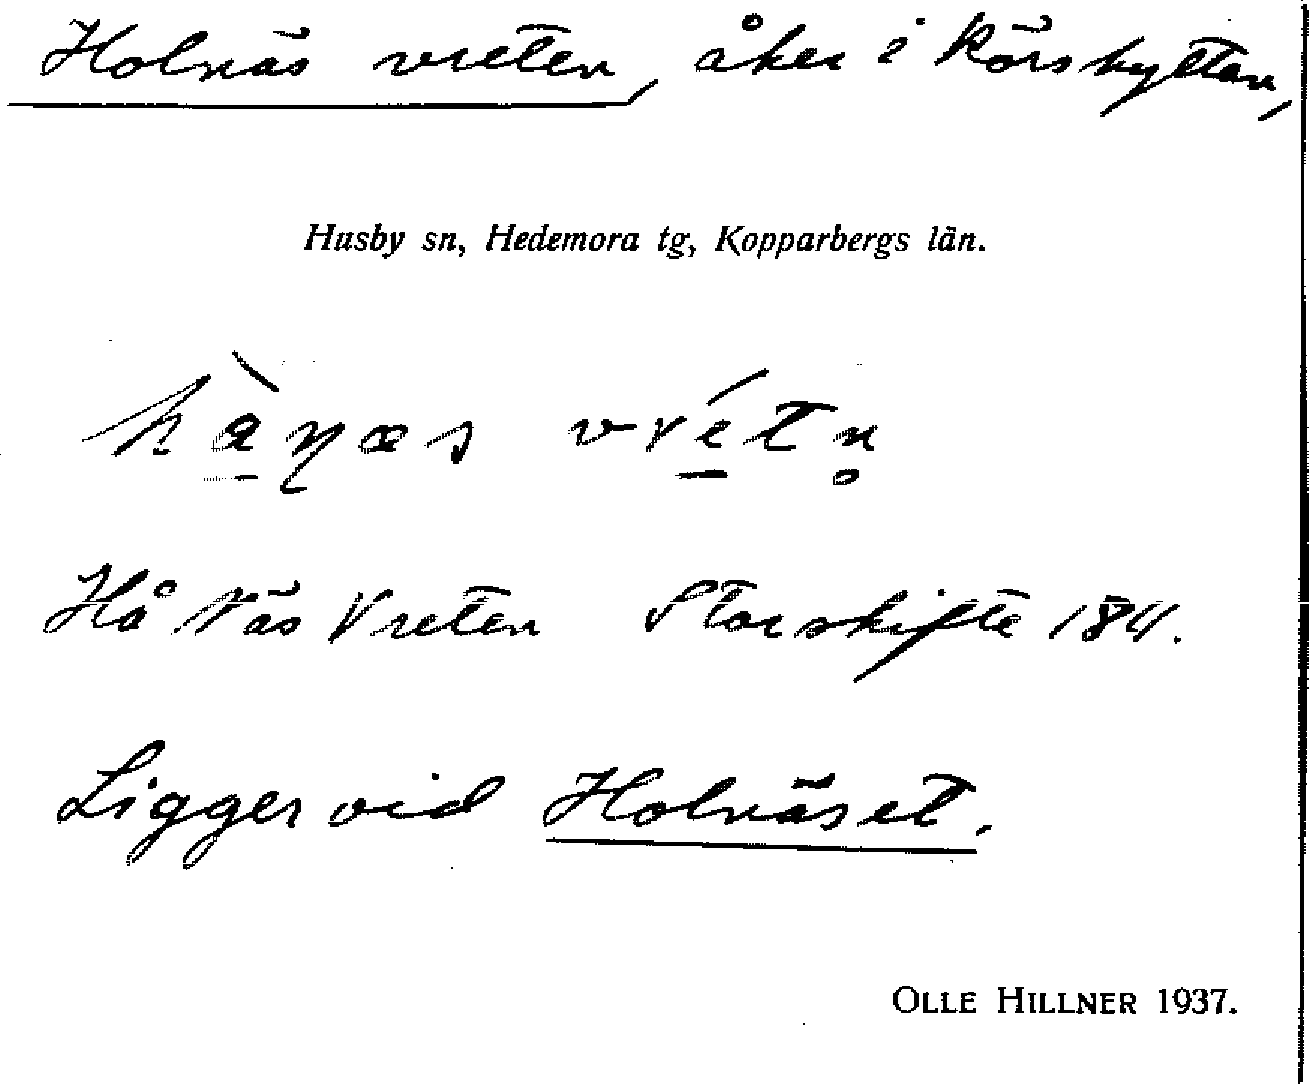 Holnäs vreten, åker i Rörshyttan,
Husby sn, Hedemora tg, Kopparbergs län.
hà̱ɳæs vré̱tn̥
Hå Näs Vreten Storskifte
Ligger vid Holnäset.
OLLE HILLNER 1937.